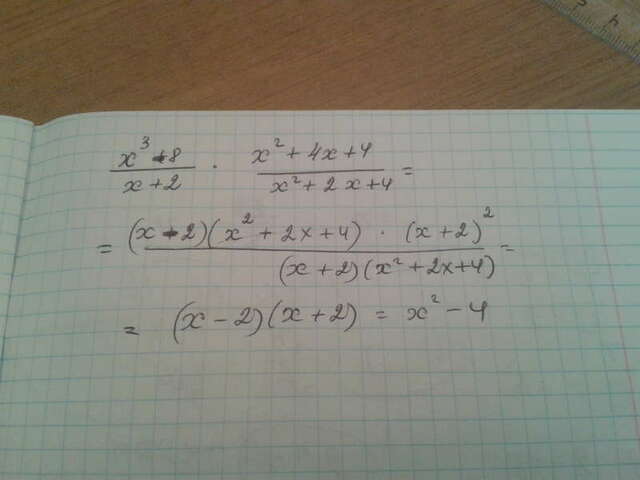 (x³ - 8)/(x + 2) · (x² + 4x + 4)/(x² + 2x + 4) =
= ((x - 2)(x² + 2x + 4) · (x + 2)²)/((x + 2)(x² + 2x + 4)) =
= (x - 2)(x + 2) = x² - 4